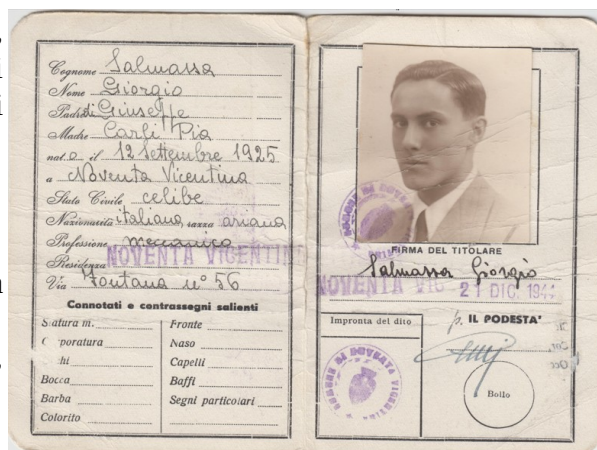 Cognome Salmassa
Nome Giorgio
Padre di Giuseppe
Madre Carli Pia
nato il 12 Settembre 1925
a Noventa Vicentina
Stato Civile celibe
Nazionalità italiana, razza ariana
Professione meccanico
Residenza NOVENTA VICENTIN
Via Fontana n° 56
Connotati e contrassegni salienti
Statura m.
Corporatura
hi
Bocca
Barba
Colorito
Fronte
Naso
Capelli
Baffi
Segni particolari
FIRMA DEL TITOLARE
Salmassa Giorgio
NOVENTA VIC 21 DIC. 1944
Impronta del dito
p. IL PODESTA'
COMUNE DI NOVENTA VICENTINA
Bollo